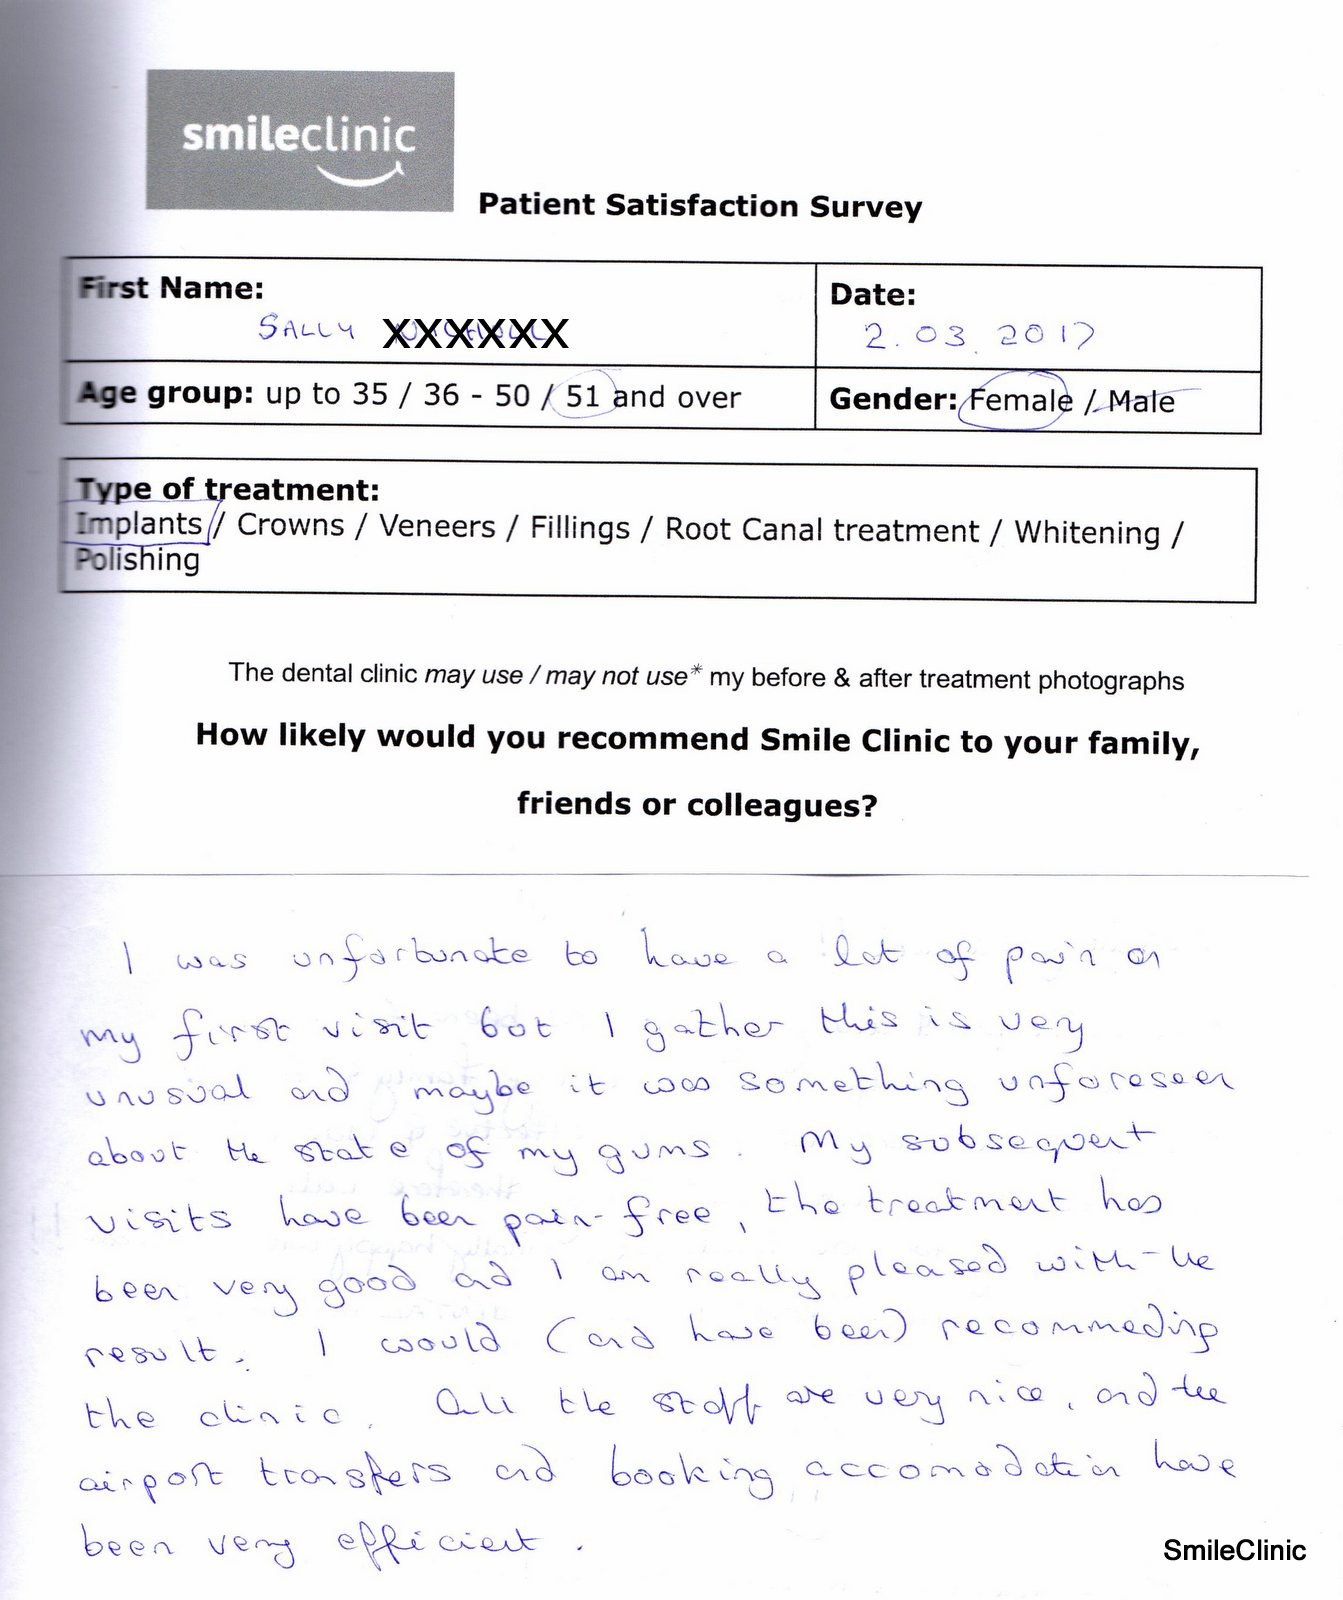 smileclinic
Patient Satisfaction Survey
First Name:
SALLY XXXXXX
Date:
2.03.2017
Age group: up to 35 / 36 - 50 / 51 and over
Gender: Female / Male
Type of treatment:
Implants / Crowns / Veneers / Fillings / Root Canal treatment / Whitening /
Polishing
The dental clinic may use / may not use* my before & after treatment photographs
How likely would you recommend Smile Clinic to your family,
friends or colleagues?
I was unfortunate to have a lot of pain on
my first visit but I gather this is very
unusual and maybe it was something unforeseen
about the state of my gums. My subsequent
visits have been pain-free, the treatment has
been very good and I am really pleased with the
result. I would (and have been) recommeding
the clinic. All the staff are very nice, and the
airport transfers and booking accomodation have
been very efficient.
SmileClinic